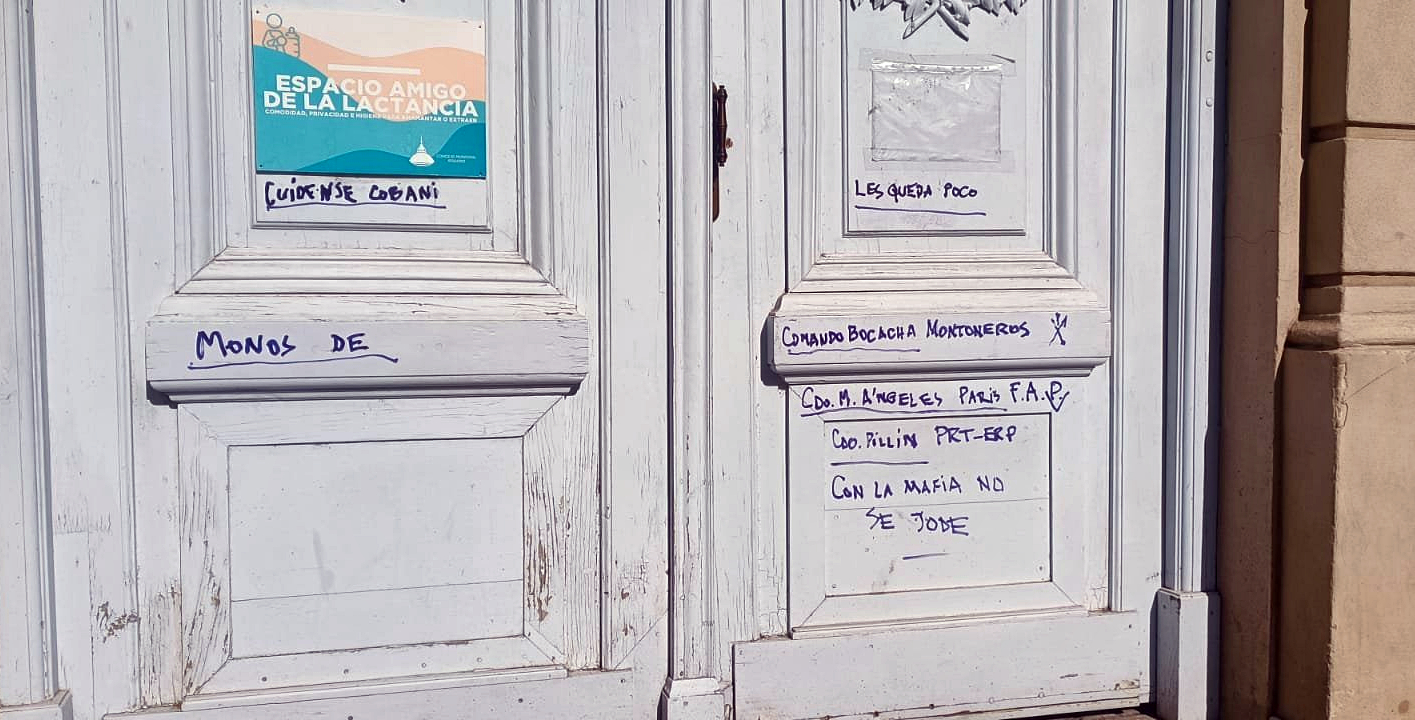 ESPACIO AMIGO
DE LA LACTANCIA
COMODIDAD, PRIVACIDAD E HIGIENE PARA AMAMANTAR O EXTRAER
CUIDENSE COBANI
MONOS DE
LES QUEDA POCO
COMANDO BOCACHA MONTONEROS
CDO. M. ÁNGELES PARIS F.A.P.
CDO. PILLIN PRT-ERP
CON LA MAFIA NO
SE JODE